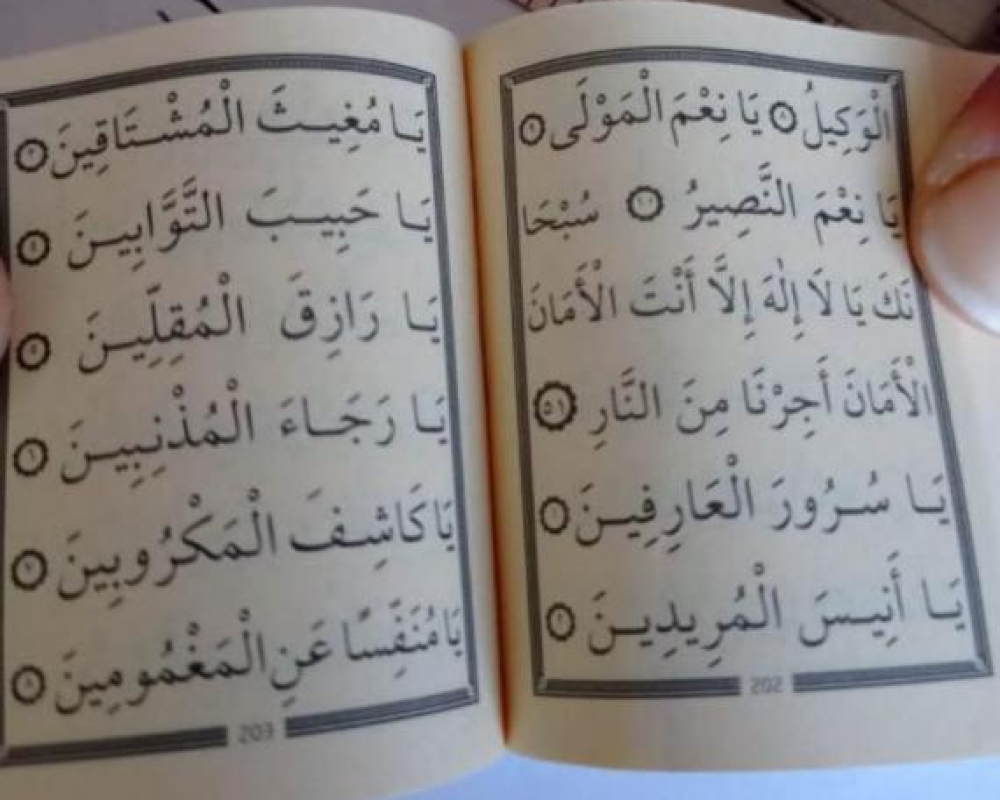 الْوَكِيلُ ٨ يَا نِعْمَ الْمَوْلَى ٩
يَا نِعْمَ النَّصِيرُ ١٠ سُبْحَا
نَكَ يَا لَا إِلٰهَ إِلَّا أَنْتَ الْأَمَانَ
الْأَمَانَ أَجِرْنَا مِنَ النَّارِ ٥١
يَا سُرُورَ الْعَارِفِينَ ١
يَا أَنِيسَ الْمُرِيدِينَ ٢
202
يَا مُغِيثَ الْمُشْتَاقِينَ ٣
يَا حَبِيبَ التَّوَّابِينَ ٤
يَا رَازِقَ الْمُقِلِّينَ ٥
يَا رَجَاءَ الْمُذْنِبِينَ ٦
يَا كَاشِفَ الْمَكْرُوبِينَ ٧
يَا مُنَفِّسًا عَنِ الْمَغْمُومِينَ ٨
203